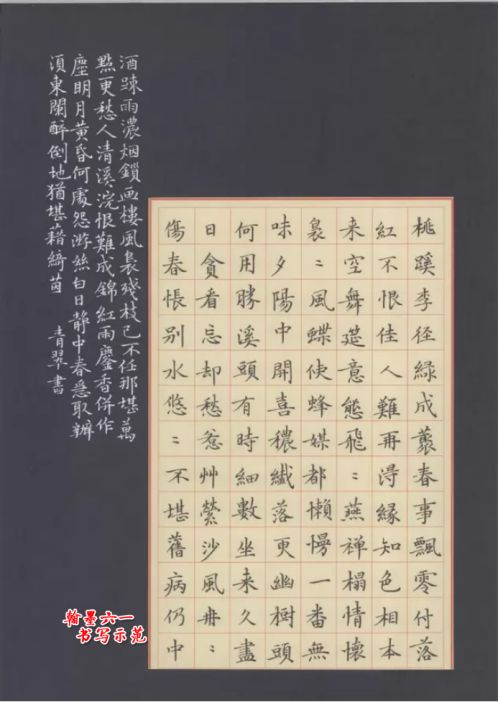 桃蹊李徑綠成叢春事飄零付落
紅不恨佳人難再得緣知色相本
来空舞筵意態飛〻燕禅榻情懷
裊〻風蝶使蜂媒都懶慢一番無
味夕陽中開喜穠纖落更幽樹頭
何用勝溪頭有時細數坐来久盡
日貪看忘却愁惹艸縈沙風冉〻
傷春悵别水悠〻不堪舊病仍中
酒踈雨濃烟鎖画樓風裊残枝已不任那堪萬
點更愁人清溪浣恨難成錦紅雨麈香併作
塵明月黄昏何處怨游絲白日静中春急取辦
須東闌醉倒地猶堪藉綺茵 青翠書
翰墨六一
书写示范